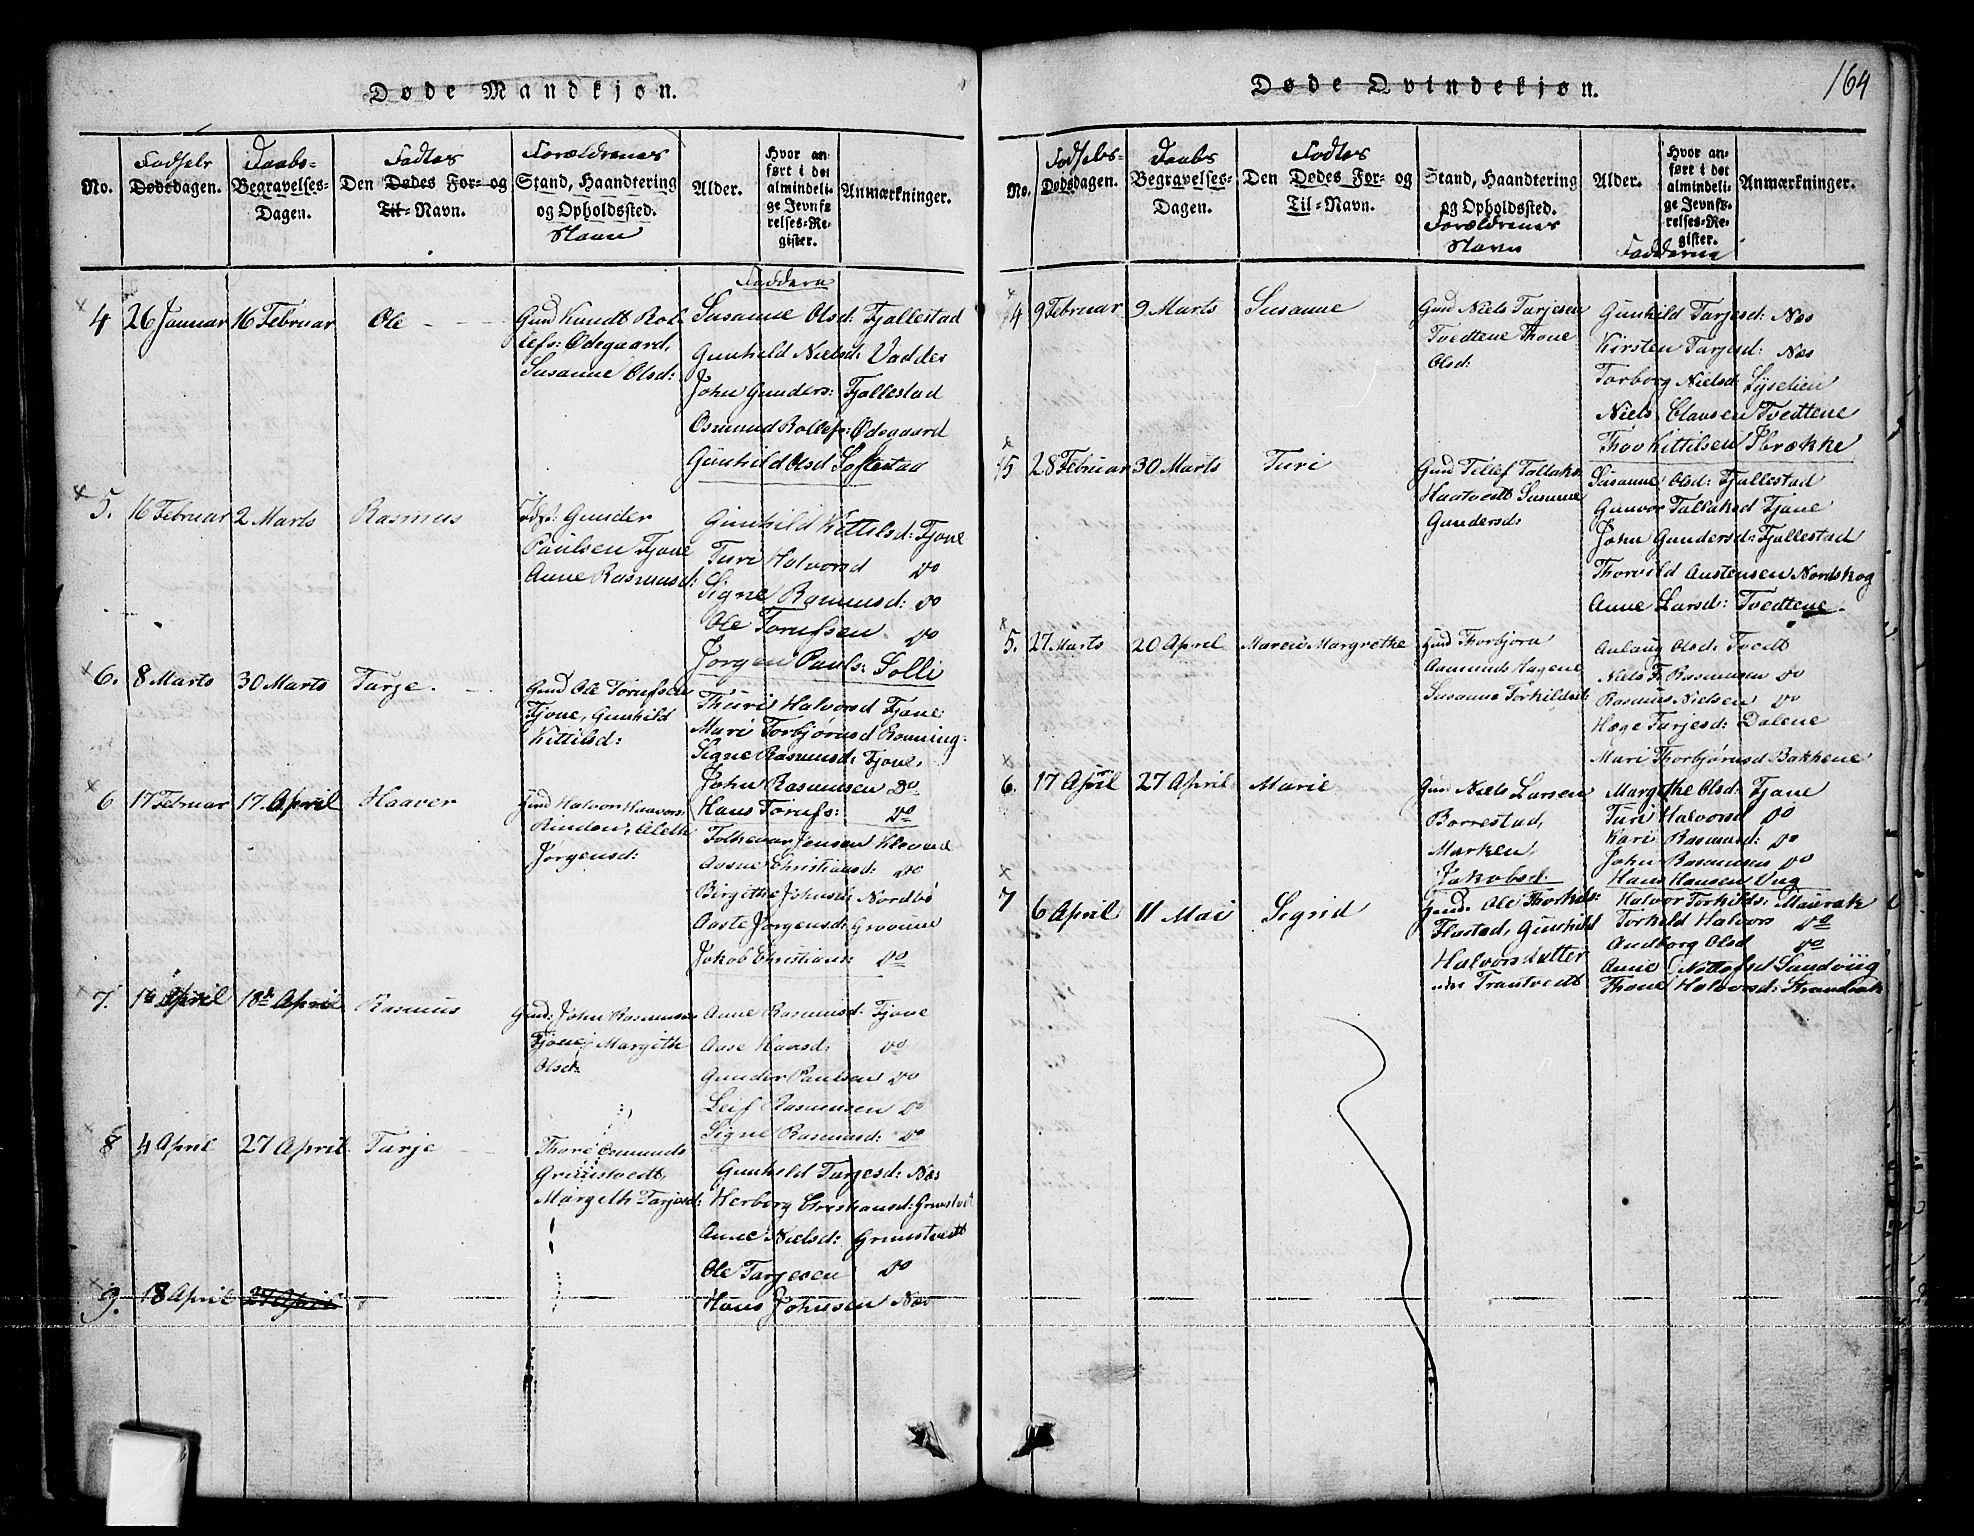 Døde Mandkjøn.
No.
Fødsels
Dødsdagen.
Daabs-
Begravelses-
Dagen.
Fødtes
Den Dødes For- og
Til-Navn.
Forældrenes
Stand, Haandtering
og Opholdssted.
Navn
Alder.
Hvor an-
ført i det
almindeli-
ge Jevnfø-
relses-Re-
gister.
Anmærkninger.
Faddere
4 26 Januar 16 Februar Ole
Gmd Knudt Rol-
lefs: Ødegaard,
Susanne Olsd:
Susanne Olsd: Fjallestad
Gunhild Nielsd: Vadder
John Gunders: Fjallestad
Osmund Rollefs: Ødegaard
Gunhild Olsd Softestad
5. 16 Februar 2 Marts Rasmus
Gunder
Paulsen Fjone
Anne Rasmusd:
Gunhild Kittilsd: Fjone
Turi Halvorsd Do
Signe Rasmusd: Do
Ole Torufsen Do
Jørgen Pauls: Solli
6. 8 Marts 30 Marts Tarje
Gmd Ole Torufsen
Fjone, Gunhild
Kittilsd:
Thuri Halvorsd Fjone
Mari Torbjørnsd Rønning
Signe Rasmusd: Fjone
John Rasmussen Do
Hans Torufs: Do
6 17 Februar 17 April Haaver
Gmd Halvor Haavors:
Rinden, Aleth
Jørgensd:
Folkevar Jensen
Aasne Christiansd: Do
Birgithe Johnsd: Nordbø
Aaste Jørgensd: Grovene
Jakob Christians: Do
7. April 18d April Rasmus
Gmd: John Rasmussen
Fjone, Margith
Olsd:
Anne Rasmusd. Fjone
Aase Hansd: Do
Gunder Paulsen Do
Leif Rasmussen Do
Signe Rasmusd: Do
8 4 April 27 April Tarje
Thore Osmunds
Grimstvedt,
Margeth Tarjesd:
Gunhild Tarjesd: Næs
Herborg Christiansd: Grimstvedt
Anne Nielsd: Grimstvedt
Ole Tarjesen Do
Hans Johnsen Næs
9. 18 April 27 April
Døde Qvindekjøn.
164
No.
Fødsels-
Dødsdagen.
Daabs
Begravelses-
Dagen.
Fødtes
Den Dødes For- og
Til-Navn.
Stand, Haandtering
og Opholdssted.
Forældrenes
Navn
Alder.
Hvor an-
ført i det
almindeli-
ge Jevnfø-
relses-Re-
gister.
Faddere
Anmærkninger.
4 9 Februar 9 Marts Susanne
Gmd Niels Tarjesen
Tvedtene Thone
Olsd:
Gunhild Tarjesd: Næs
Kirsten Tarjesd: Næs
Torborg Nielsd: Lyselien
Niels Clausen Tvedtene
Thov Kittilsen Brække
5 28 Februar 30 Marts Turi
Gmd Tellef Tallaks:
Haatvedt Susanne
Gundersd:
Susanne Olsd: Fjallestad
Gunvor Tallaksd Fjane
John Gundersd: Fjallestad
Thorvild Austensen Nordskog
Anne Larsd: Tvedtene.
5. 27 Marts 20 April Maren Margrethe
Gmd Thorbjørn
Aamunds Hagene
Susanne Torkildsd:
Aslaug Olsd. Tvedt
Niels F. Rasmussen Do
Rasmus Nielsen Do
Hæge Tarjesd: Dalene
Mari Thorbjørnsd Bakkene
6. 17 April 27 April Marie
Gmd Niels Larsen
Borrestad,
Marken,
Jakobsd:
Margithe Olsd: Fjane
Turi Halvorsd Do
Kari Rasmusd: Do
John Rasmussen Do
Hans Hansen Vug
7 6 April 11 Mai Sigrid
Gmd. Ole Thorkils:
Flustad, Gunhild
Halvorsdatter
Trantvedt
Halvor Torkilds: Maurak
Torkild Halvors Do
Andborg Olsd Do
Anne Nottofsd Sandviig
Thone Halvorsd: Strandvik